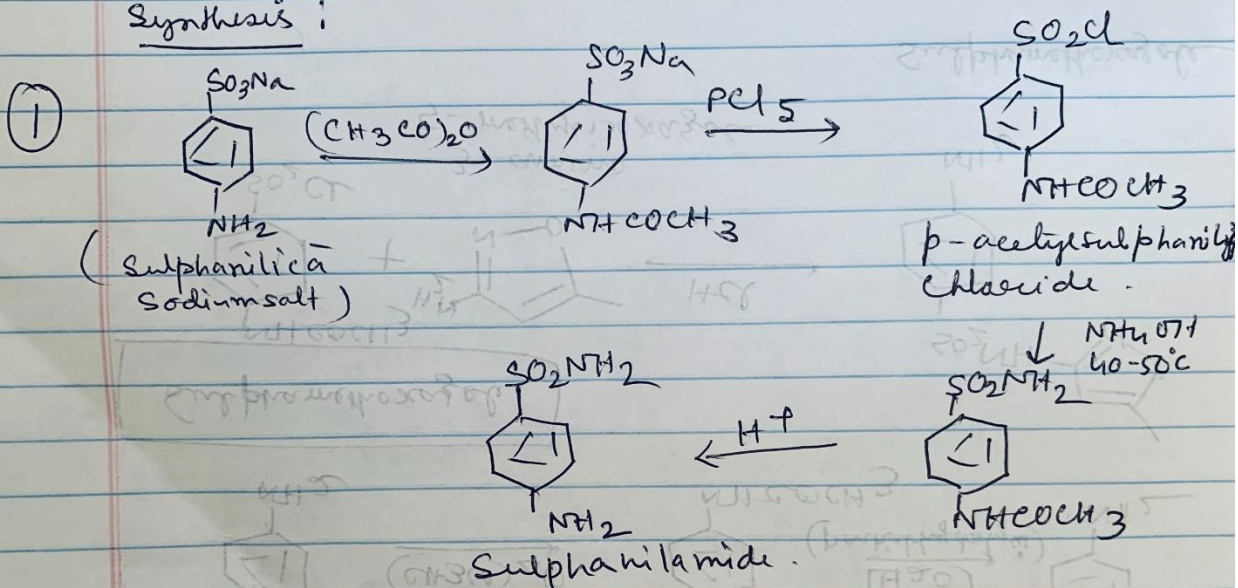 Synthesis :
1
SO3Na
(CH3CO)2O
NH2
(Sulphanilic a
Sodium salt)
SO3Na
PCl5
NHCOCH3
SO2Cl
NHCOCH3
p-acetylsulphanilyl
chloride.
NH4OH
40-50°C
SO2NH2
NHCOCH3
H+
SO2NH2
NH2
Sulphanilamide.